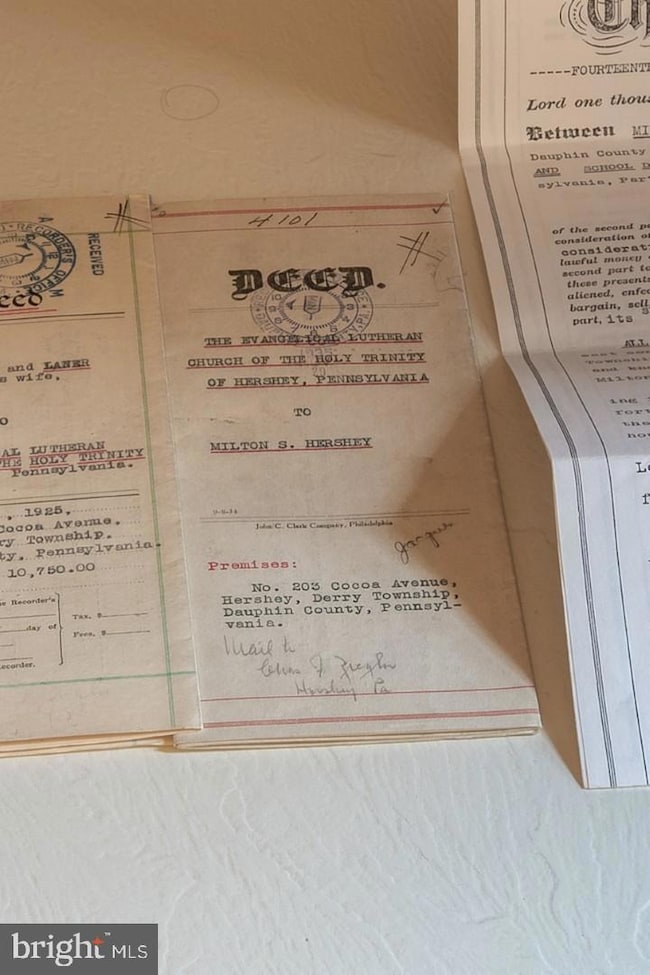 RECORDER'S OFFICE
RECEIVED
and LANER
wife.
AL LUTHERAN
THE HOLY TRINITY
Pennsylvania.
, 1925,
Cocoa Avenue.
ry Township.
ty, Pennsylvania.
10,750.00
he Recorder's
day of
Recorder.
Tax, $
Fees, $
4101
DEED.
THE EVANGELICAL LUTHERAN
CHURCH OF THE HOLY TRINITY
OF HERSHEY, PENNSYLVANIA
TO
MILTON S. HERSHEY
John C. Clark Company, Philadelphia
Premises:
No. 203 Cocoa Avenue,
Hershey, Derry Township,
Dauphin County, Pennsyl-
vania.
Mail to
Hershey Pa
-----FOURTEENTH
Lord one thous
Between MI
Dauphin County
AND SCHOOL D
sylvania, Part
of the second pa
consideration of
considerat
lawful money
second part to
these presents
aliened, enfeo
bargain, sell
part, its
ALL
Township
and kno
Milton
ing
fort
the
bright MLS